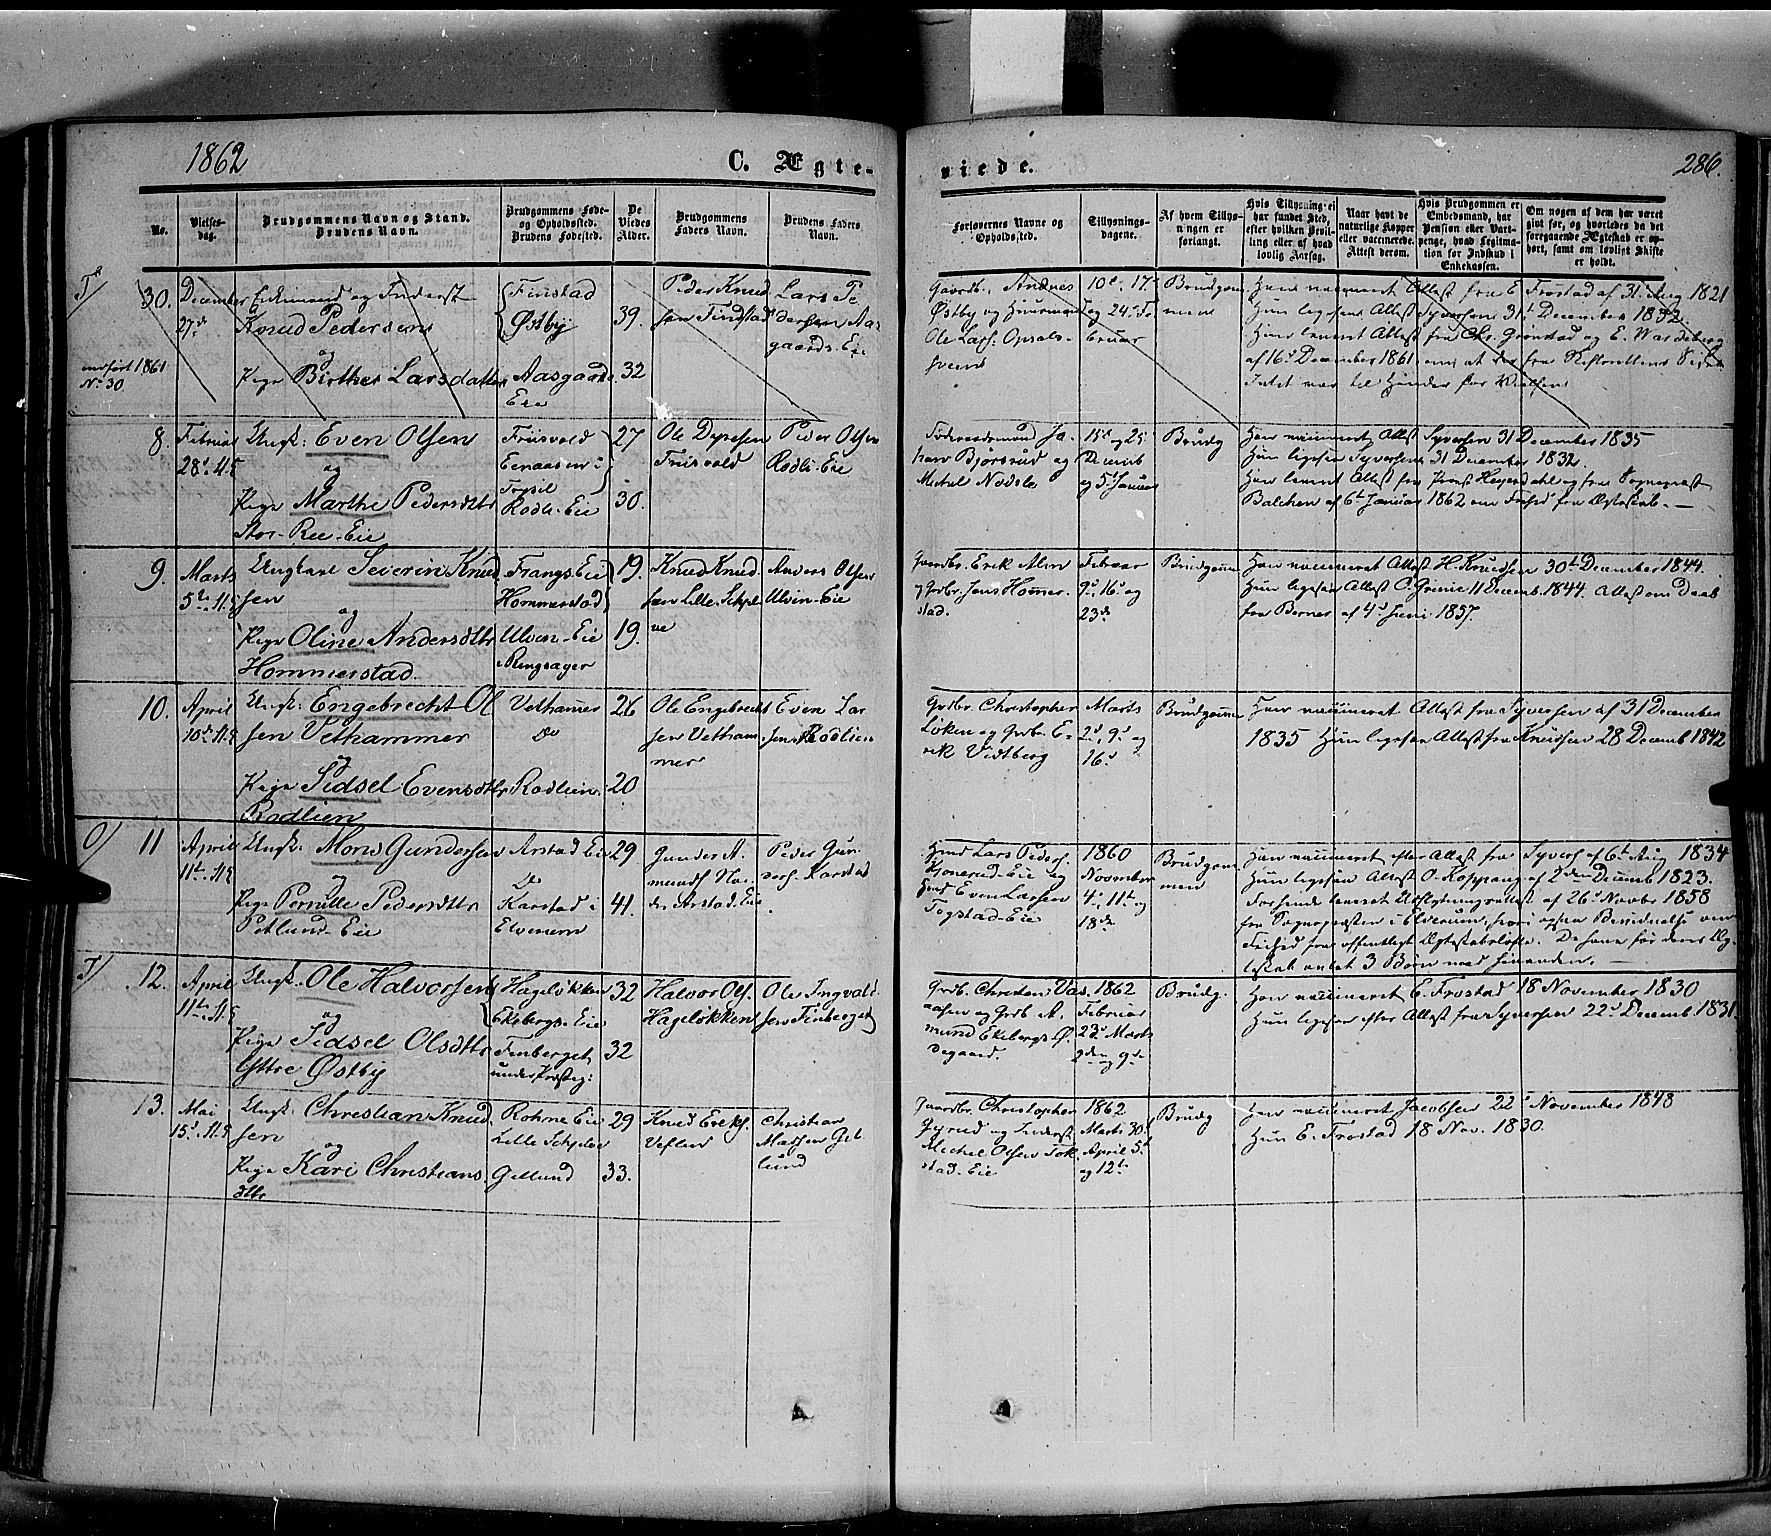 1862
C. Ægte-
viede.
286.
No.
Vielses-
dag.
Brudgommens Navn og Stand.
Brudens Navn.
Brudgommens Føde-
og Opholdssted.
Brudens Fødested.
De
Viedes
Alder.
Brudgommens
Faders Navn.
Brudens Faders
Navn.
Forlovernes Navne og
Opholdssted.
Tillysnings-
dagene.
Af hvem Tillys-
ningen er
forlangt.
Hvis Tillysning ei
har fundet Sted,
efter hvilken Bevil-
ling eller af hvad
lovlig Aarsag.
Naar havt de
naturlige Kopper
eller vaccinerede.
Attest derom.
Hvis Brudgommen er
Embedsmand, har
Pension eller Vart-
penge, hvad Legitima-
tion for Indskud i
Enkekassen.
Om nogen af dem har været
gift før, og hvorledes da det
foregaaende Ægteskab er op-
hørt, samt om lovligt Skifte
er holdt.
indført 1861
N. 30
30.
December
27de
og Inderst
Knud Pedersen
og
Pige Birthe Larsdatter
Finstad
Østby
Aasgaards
Eie
39.
32
Peder Knud
sen Finstad
Lars Pe
dersen Aas
gaards-Eie
Gaardb. Andres
Østby og Huusmand
Ole Lars. Opsals-
sveen
10de 17de
og 24de Fe
bruar
Brudgom
men
Han vaccineret Attest fra E Frostad af 31. Aug 1821
Hun ligesaa Attest Syversen 31te December 1832.
Han leveret Attest fra Chr. Grønstad og E. Wardeberg
af 16de December 1861 om at der fra Skifterettens Side
Intet var til Hinder for Vielsen
8.
Februar
28de 11/5
Ungk: Even Olsen
og
Pige Marthe Pedersdtr
Stor-Ree-Eie
Friisvold
Eenaasen i
Trysil
Rodli-Eie
27
30.
Ole Dyresen
Friisvold
Peder Olsen
Rodli-Eie
Jo-
han Bjørsrud og
Mickel Nodsle
15de og 25
Decemb
og 5te Januar
Brudg
Han vaccineret Attest Syversen 31 December 1835
Hun ligesaa Syversen 31 December 1832.
Han leveret Attest fra Provst Heyerdahl og fra Sogneprest
Balchen af 6te Januar 1862 om Frihed fra Ægteskab. —
9.
Marts
5te 11/5
Ungkarl Severin Knud
sen
og
Pige Oline Andersdtr
Hommerstad.
Frangs-Eie
Hommerstad
Ulven-Eie
Ringsager
19.
19.
Knud Knud
sen Lille-Skjel
ve
Anders Olsen
Ulvin-Eie
Gaardbr. Erik Alm
og Grbr. Jens Hommer-
stad.
Februar
9de 16de og
23de
Brudgom
Han vaccineret Attest H. Knudsen 30te December 1844.
Hun ligesaa Attest O. Grinie 11 Decemb. 1844. Attest om Daab
fra Berner af 4de Juni 1857.
10.
April
10de 11/5
Ungk: Engebrecht Ol
sen Vethammer
og
Pige Sidsel Evensdtr
Rodlien
Vethamer
Do
Rodlien
26
20
Ole Engebrecht
sen Vetham
mer
Even Lar
sen Rodlien
Grdbr. Christopher
Løken og Grbr. E-
rik Vidtberg
Marts
2de 9de og
16de
Brudgom
Han vaccineret Attest fra Syversen af 31 December
1835 Hun ligesaa Attest fra Knudsen 28 Decemb 1842
O/
11
April
11te 11/5
Ungk: Mons Gundersen
og
Pige Pernille Pedersdtr
Petlund-Eie
Arstad Eie
Do
Karstad i
Elverum
29
41.
Gunder A.
mund. No.
Arstad-Eie
Peder Gun
ders. Karstad
Hmd Lars Peders.
Kjønerud-Eie og
Hmd Even Larsen
Togstad-Eie
1860
November
4de 11te og
18de
Brudgom
men
Han vaccineret efter Attest fra Syvers af 6te Aug 1834
Hun ligesaa Attest O. Koppang af 2den Decemb 1823.
Forhende leveret Udflytningsattest af 26de Novbr 1858
fra Sognepresten i Elverum, hvori ogsaa Bevidnelse om
Frihed fra offentligt Ægteskabsløfte. De have før deres Æg-
teskab avlet 3 Børn med hinanden. —
T/
12.
April
11te 11/5
Ungk: Ole Halvorsen
og
Pige Sidsel Olsdtr
Yttre Østby
Hageløkken
Ekebergs-Eie
Finberget
under
32
32
Halvor Ols.
Hageløkken
Ole Ingvald
sen Finberget
Grdb. Christen Vas-
aasen og Grdb A.
mund Ekebergs Ø.
degaard.
1862
Februar
23de Marts
2den og 9de
Brudg.
Han vaccineret E. Frostad 18 November 1830
Hun ligesaa efter Attest fra Syversen 22de Decemb. 1831
13.
Mai
15de 11/5
Ungk: Christian Knud
sen
og
Pige Kari Christians-
dtr
Rohne Eie
Lille Skjelve
Getlund
29
33.
Knud Eriks.
Veflen
Christian
Madsen Get
lund
Gaardbr. Christopher
Gjerud og Inderst
Mickel Olsen Tok-
stad-Eie
1862
Marts 30te
April 5te
og 12te
Brudg
Han vaccineret Jacobsen 22de November 1848
Hun E. Frostad 18 Nov. 1830.